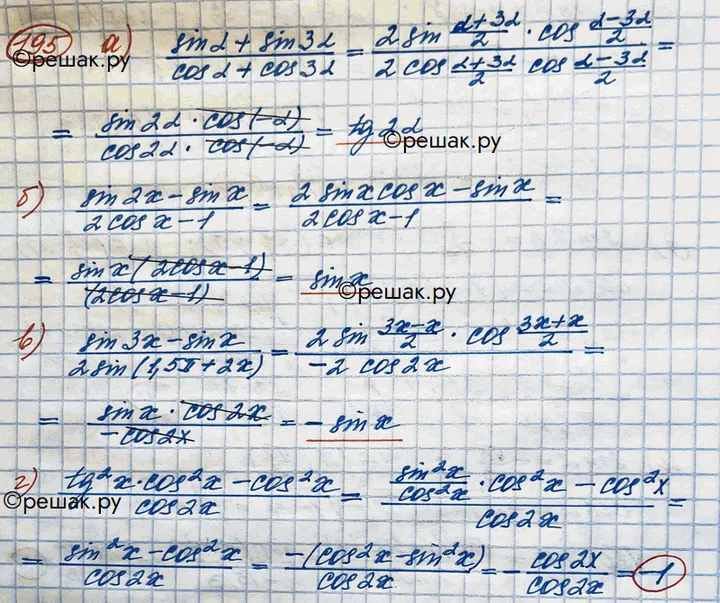 195 а) (sinα + sin3α)/(cosα + cos3α) = (2 sin (α+3α)/2 · cos (α-3α)/2)/(2 cos (α+3α)/2 cos (α-3α)/2) =
©решак.ру
= (sin2α · cos(-α))/(cos2α · cos(-α)) = tg2α
©решак.ру
б) (sin2x - sinx)/(2cosx - 1) = (2 sinx cosx - sinx)/(2cosx - 1) =
= (sinx(2cosx - 1))/((2cosx - 1)) = sinx
©решак.ру
в) (sin3x - sinx)/(2sin(1,5π + 2x)) = (2 sin (3x-x)/2 · cos (3x+x)/2)/(-2 cos2x) =
= (sinx · cos2x)/(-cos2x) = - sinx
г) (tg²x · cos²x - cos²x)/(cos2x) = (sin²x/cos²x · cos²x - cos²x)/(cos2x) =
©решак.ру
= (sin²x - cos²x)/(cos2x) = (-(cos²x - sin²x))/(cos2x) = - cos2x/cos2x = -1